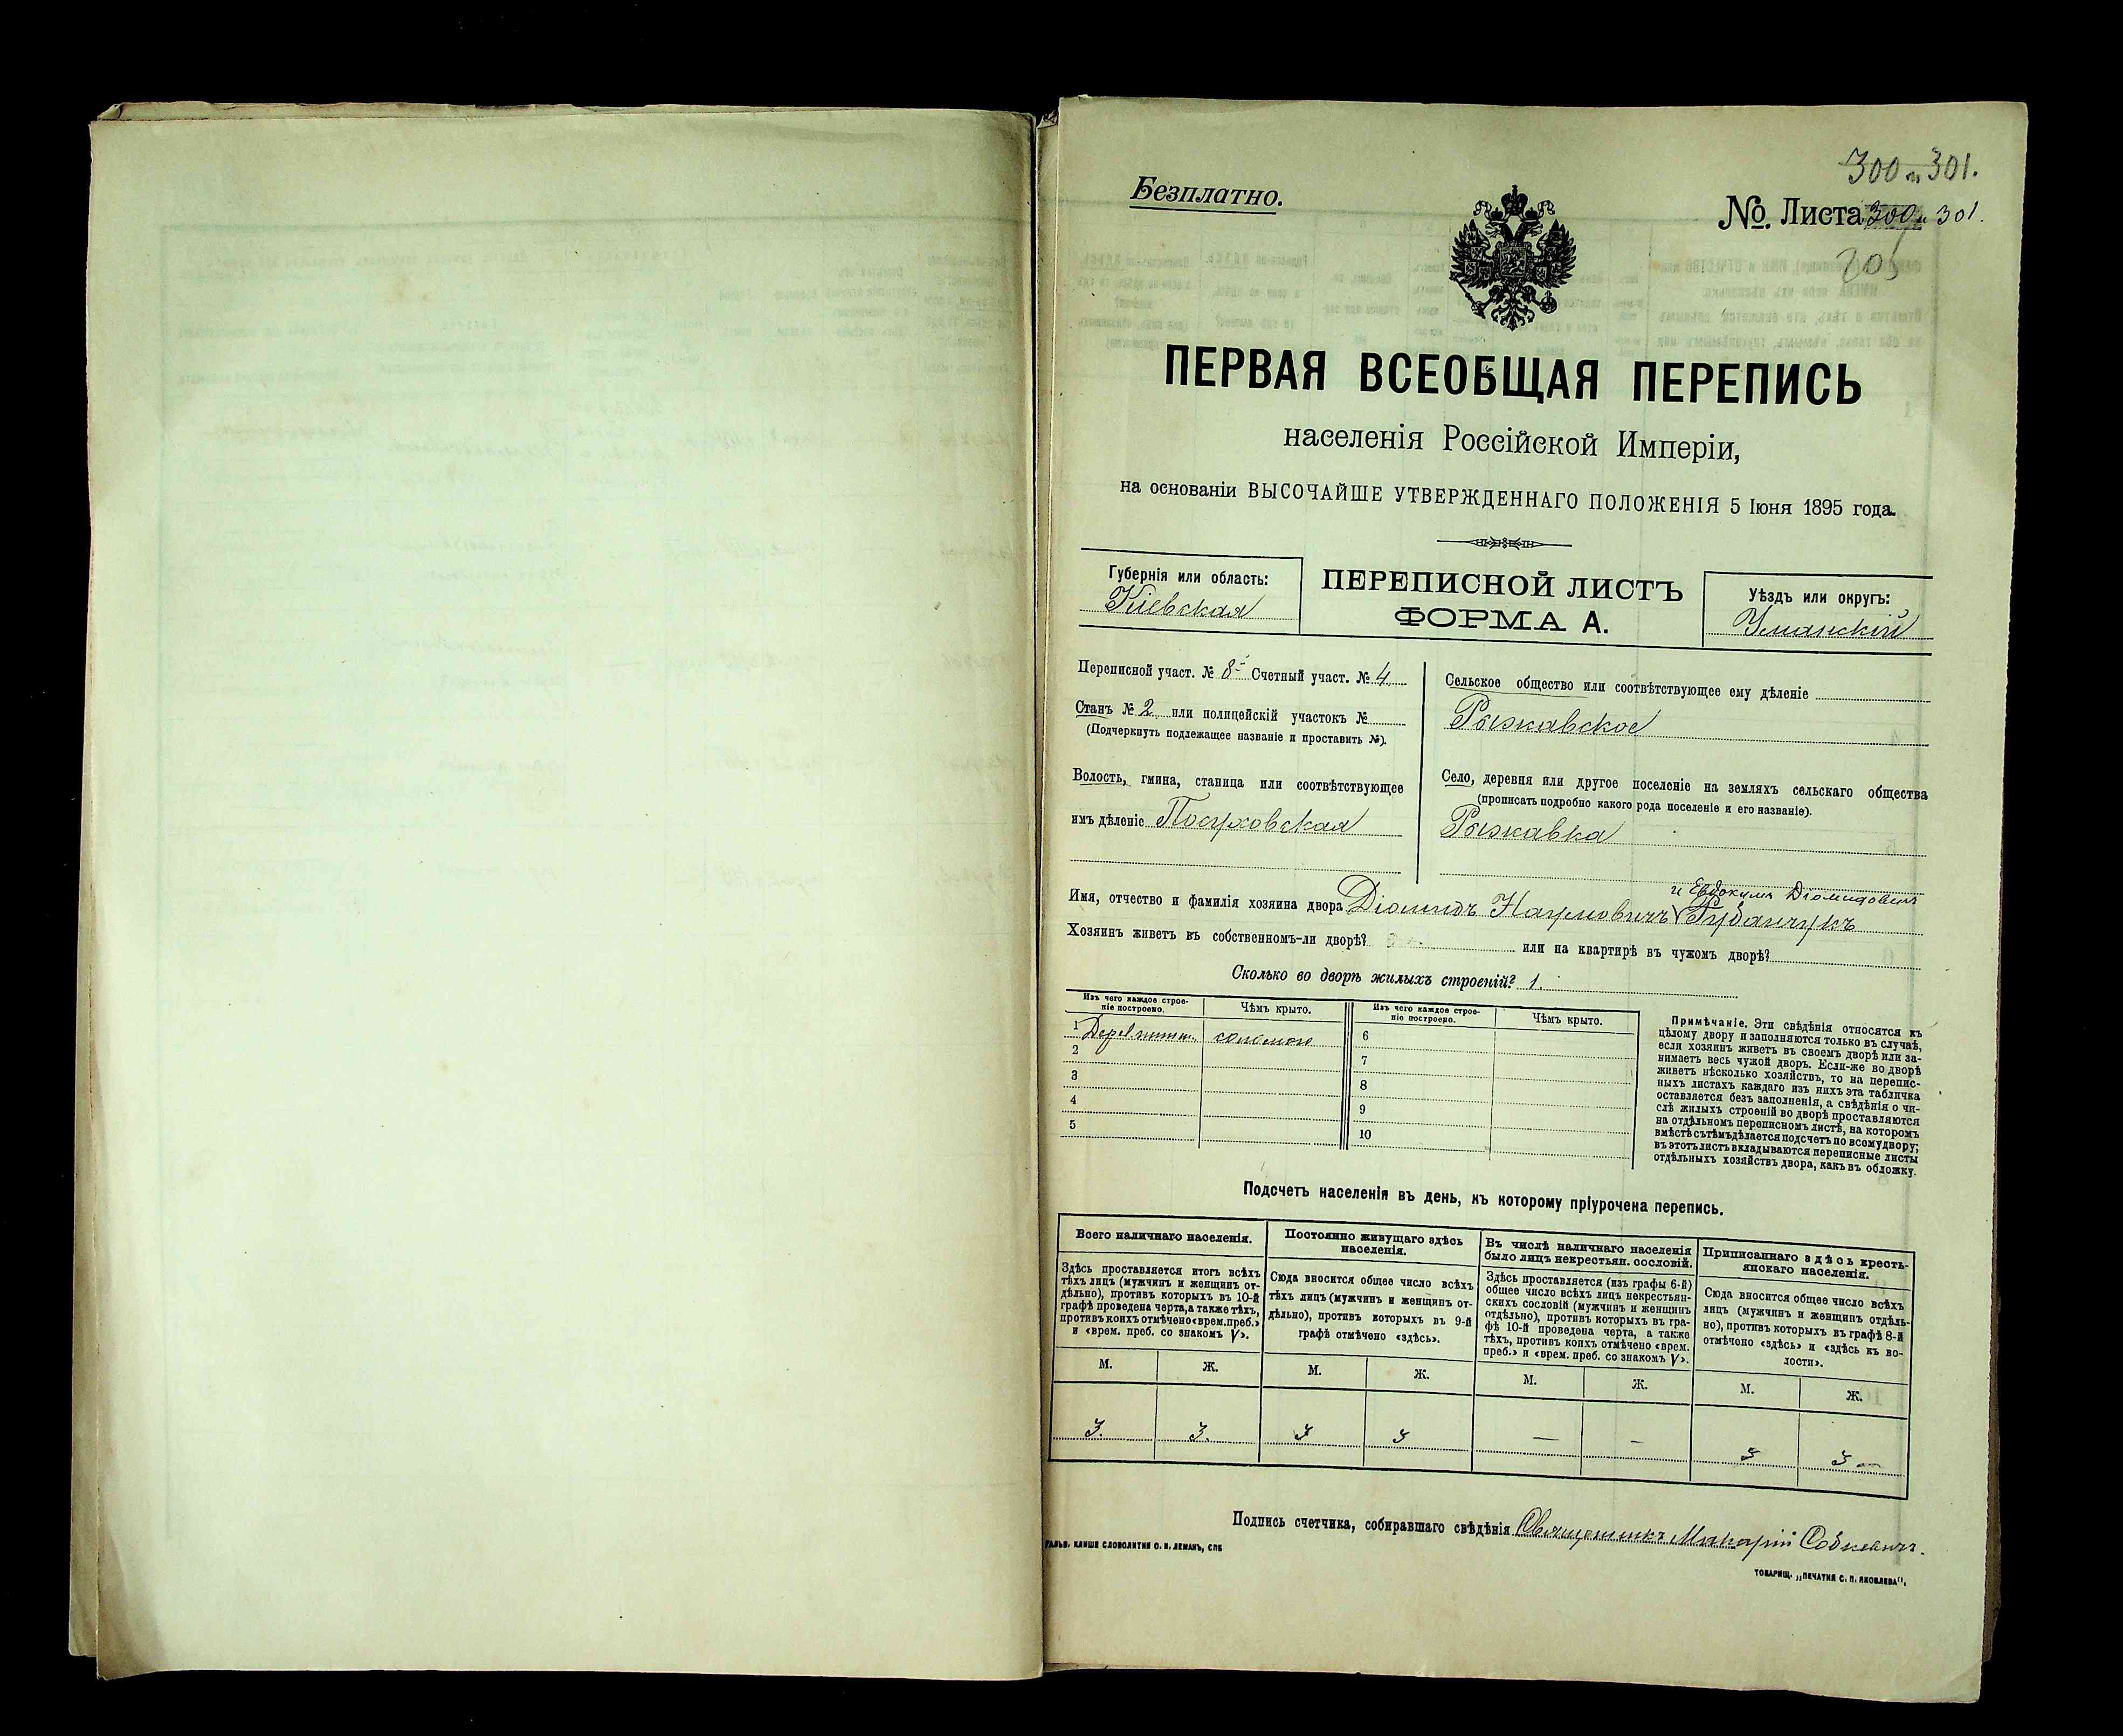 300 и 301.
Безплатно.
№. Листа 300 и 301.
205
ПЕРВАЯ ВСЕОБЩАЯ ПЕРЕПИСЬ
населенія Россійской Имперіи,
на основаніи ВЫСОЧАЙШЕ УТВЕРЖДЕННАГО ПОЛОЖЕНІЯ 5 Іюня 1895 года.
Губернія или область:
Кіевская
ПЕРЕПИСНОЙ ЛИСТЪ
ФОРМА А.
Уѣздъ или округъ:
Уманскій
Переписной участ. № 8 Счетный участ. № 4
Станъ № 2 или полицейскій участокъ №
(Подчеркнуть подлежащее названіе и проставить №).
Волость, гмина, станица или соотвѣтствующее
имъ дѣленіе Посуховская
Сельское общество или соотвѣтствующее ему дѣленіе
Рыжавское
Село, деревня или другое поселеніе на земляхъ сельскаго общества
(прописать подробно какого рода поселеніе и его названіе).
Рыжавка
и Евдокимъ Діомидовичъ
Имя, отчество и фамилія хозяина двора Діомидъ Наумовичъ Губанчукъ
Хозяинъ живетъ въ собственномъ-ли дворѣ? или на квартирѣ въ чужомъ дворѣ?
Сколько во дворѣ жилыхъ строеній? 1.
Изъ чего каждое строе-
ніе построено.
Чѣмъ крыто.
Изъ чего каждое строе-
ніе построено.
Чѣмъ крыто.
1 соломою
2
3
4
5
6
7
8
9
10
Примѣчаніе. Эти свѣдѣнія относятся къ
цѣлому двору и заполняются только въ случаѣ,
если хозяинъ живетъ въ своемъ дворѣ или за-
нимаетъ весь чужой дворъ. Если-же во дворѣ
живетъ нѣсколько хозяйствъ, то на перепис-
ныхъ листахъ каждаго изъ нихъ эта табличка
оставляется безъ заполненія, а свѣдѣнія о чи-
слѣ жилыхъ строеній во дворѣ проставляются
на отдѣльномъ переписномъ листѣ, на которомъ
вмѣстѣ съ тѣмъ дѣлается подсчетъ по всему двору;
въ этотъ листъ вкладываются переписные листы
отдѣльныхъ хозяйствъ двора, какъ въ обложку.
Подсчетъ населенія въ день, къ которому пріурочена перепись.
Всего наличнаго населенія.
Здѣсь проставляется итогъ всѣхъ
тѣхъ лицъ (мужчинъ и женщинъ от-
дѣльно), противъ которыхъ въ 10-й
графѣ проведена черта, а также тѣхъ,
противъ коихъ отмѣчено «врем. преб.»
и «врем. преб. со знакомъ V».
Постоянно живущаго здѣсь
населенія.
Сюда вносится общее число всѣхъ
тѣхъ лицъ (мужчинъ и женщинъ от-
дѣльно), противъ которыхъ въ 9-й
графѣ отмѣчено «здѣсь».
Въ числѣ наличнаго населенія
было лицъ некрестьян. сословій.
Здѣсь проставляется (изъ графы 6-й)
общее число всѣхъ лицъ некрестьян-
скихъ сословій (мужчинъ и женщинъ
отдѣльно), противъ которыхъ въ гра-
фѣ 10-й проведена черта, а также
тѣхъ, противъ коихъ отмѣчено «врем.
преб.» и «врем. преб. со знакомъ V».
Приписаннаго здѣсь кресть-
янскаго населенія.
Сюда вносится общее число всѣхъ
лицъ (мужчинъ и женщинъ отдѣль-
но), противъ которыхъ въ графѣ 8-й
отмѣчено «здѣсь» и «здѣсь къ во-
лости».
М. Ж. М. Ж. М. Ж. М. Ж.
3. 3. 3 3 — — 3 3 —
Подпись счетчика, собиравшаго свѣдѣнія Священникъ Макарій Собкевичъ.
ГАЛЬВ. КЛИШЕ СЛОВОЛИТНИ О. И. ЛЕМАНЪ, СПБ
ТОВАРИЩ. „ПЕЧАТНЯ С. П. ЯКОВЛЕВА".